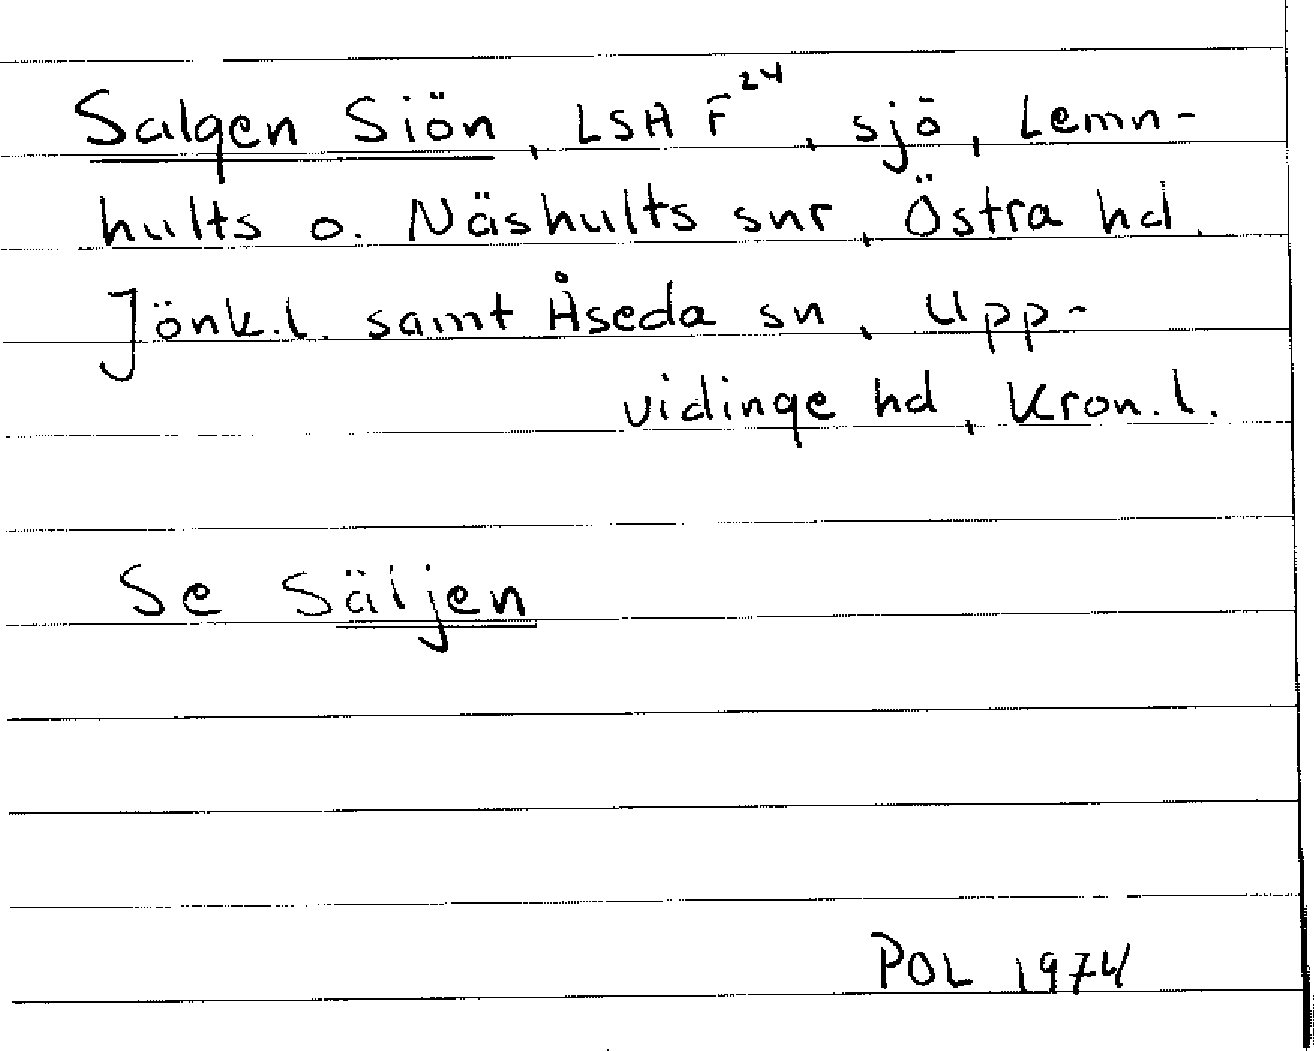 Salgen Siön, LSA F²⁴, sjö, Lemn-
hults o. Näshults snr, Östra hd.
Jönk.l. samt Åseda sn, Upp-
vidinge hd, Kron.l.
Se Säljen
POL 1974